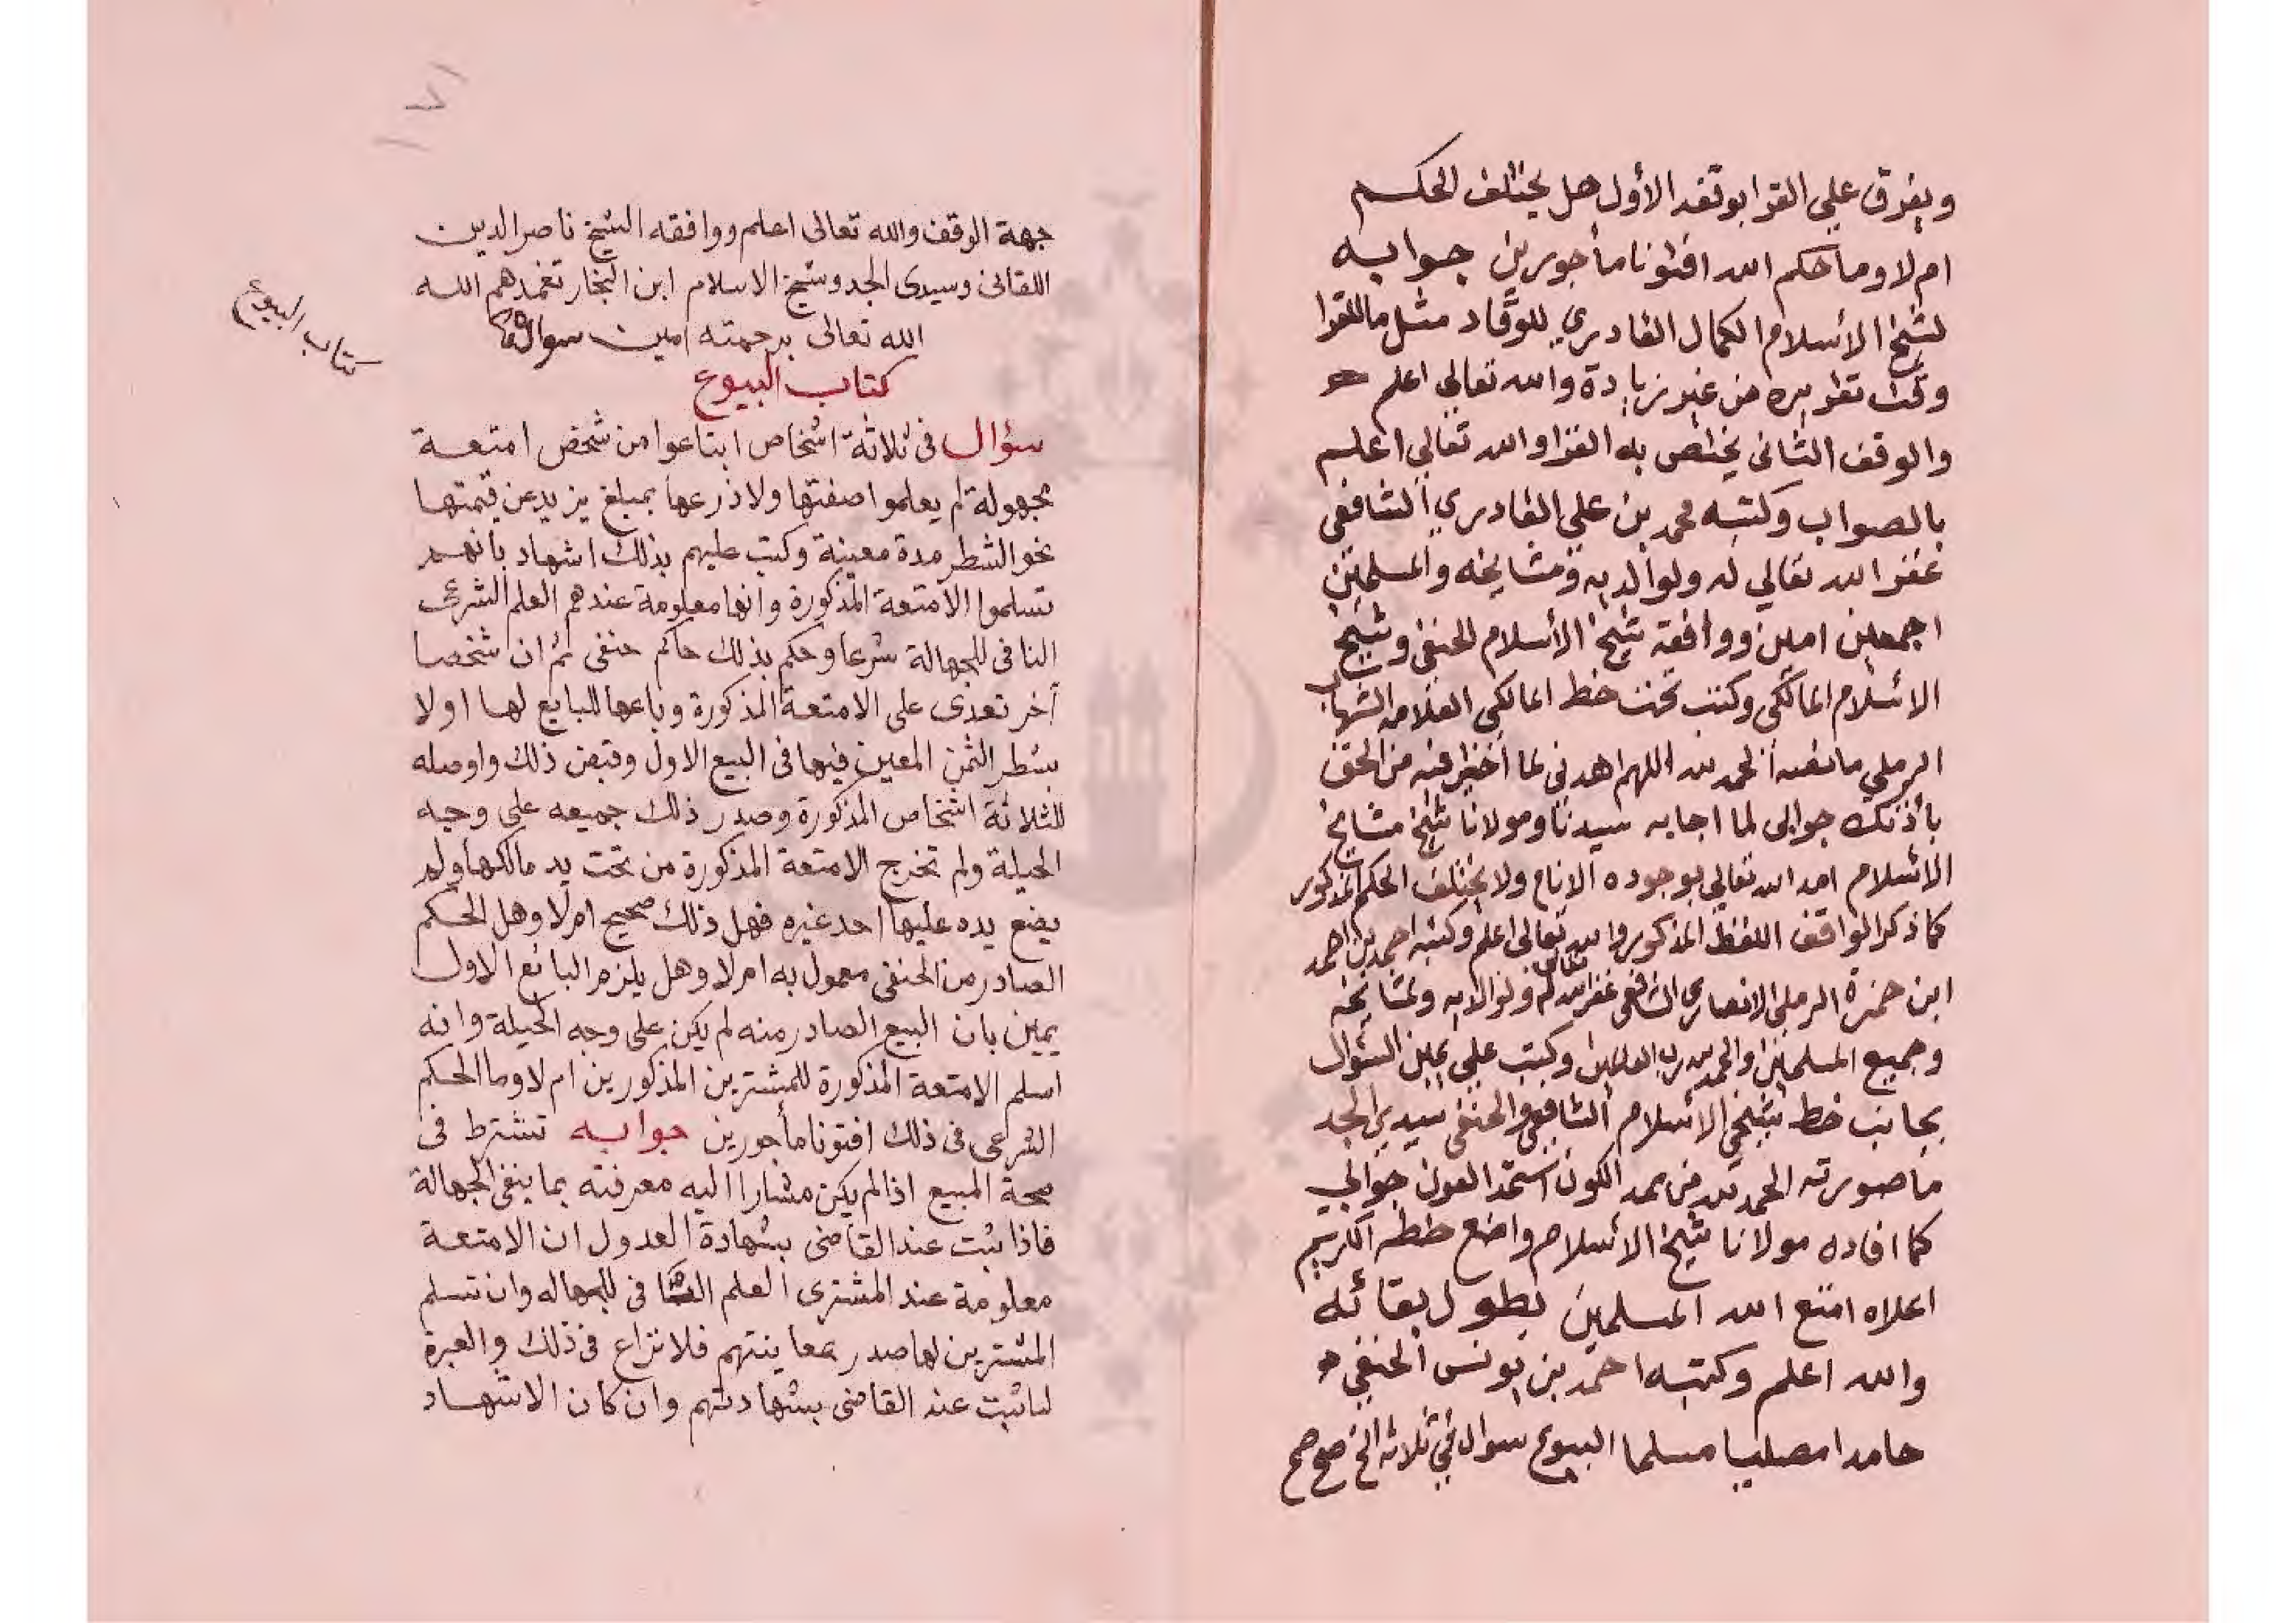 ويفرق علي القرا بوقفه الأول هل يختلف الحكم
ام لا وما حكم الله افتونا مأجورين جوابه
لشيخ الأسلام الكمال القادري للوقاد مثل ما للقرا
وقت تقريره من غير زيادة والله تعالي اعلم
والوقف الثاني يختص به القرا والله تعالي اعلم
بالصواب وكتبه محمد بن علي القادري الشافعي
غفر الله تعالي له ولوالديه ومشايخه والمسلمين
اجمعين امين ووافقه شيخ الأسلام الحنفي وشيخ
الاسلام المالكي وكتب تحت خط المالكي العلامه الشهاب
الرملي ما نصه الحمد لله اللهم اهدني لما اختلف فيه من الحق
بأذنك جوابي لما اجاب به سيدنا ومولانا شيخ مشايخ
الاسلام امد الله تعالي بوجوده الانام ولا يختلف الحكم المذكور
كما ذكر الواقف اللفظ المذكور والله تعالي اعلم وكتبه احمد بن احمد
ابن حمزة الرملي الانصاري الشافعي غفر الله تعالى له ولوالديه ومشايخه
وجميع المسلمين والحمد لله رب العالمين وكتب علي يمين السؤال
بجانب خط شيخي الاسلام الشافعي والحنفي سيدي الجد
ما صورته الحمد لله من ممد الكون استمد العون جوابي
كما افاده مولانا شيخ الاسلام واضع خطه الكريم
اعلاه امتع الله المسلمين بطول بقائه
والله اعلم وكتبه احمد بن يونس الحنفي
حامدا مصليا مسلما البيوع سوال في ثلاثه الخ صح صح
جهة الوقف والله تعالى اعلم ووافقه الشيخ ناصر الدين
اللقانى وسيدى الجد وشيخ الاسلام ابن النجار تغمدهم الله
الله تعالى برحمته امين سوال
كتاب البيوع
كتاب البيوع
سؤال فى ثلاثة اشخاص ابتاعوا من شخص امتعة
مجهولة لم يعلموا صفتها ولا ذرعها بمبلغ يزيد عن قيمتها
نحو الشطر مدة معينة وكتب عليهم بذلك اشهاد بانهم
تسلموا الامتعة المذكورة وانها معلومة عندهم العلم الشرعى
النافى للجهالة شرعا وحكم بذلك حاكم حنفى ثم ان شخصا
آخر تعدى على الامتعة المذكورة وباعها للبايع لها اولا
بشطر الثمن المعين فيها فى البيع الاول وقبض ذلك واوصله
للثلاثة اشخاص المذكورة وصدر ذلك جميعه على وجه
الحيلة ولم تخرج الامتعة المذكورة من تحت يد مالكها ولم
يضع يده عليها احد غيره فهل ذلك صحيح ام لا وهل الحكم
الصادر من الحنفى معمول به ام لا وهل يلزم البائع الاول
يمين بان البيع الصادر منه لم يكن على وجه الحيلة وانه
اسلم الامتعة المذكورة للمشترين المذكورين ام لا وما الحكم
الشرعى فى ذلك افتونا مأجورين جوابه تشترط فى
صحة المبيع اذا لم يكن مشارا اليه معرفته بما ينفى الجهالة
فاذا ثبت عند القاضى بشهادة العدول ان الامتعة
معلومة عند المشترى العلم النافى للجهاله وان تسلم
المشترين لها صدر بمعاينتهم فلا نزاع فى ذلك والعبرة
لما ثبت عند القاضى بشهادتهم وان كان الاشهاد